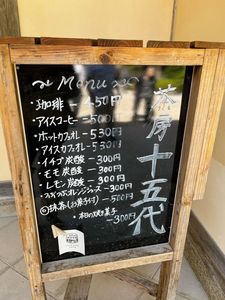 ～Menu～
茶房 十五代
・珈琲 - 450円
・アイスコーヒー - 500円
・ホットカフェオレ - 530円
・アイスカフェオレ - 530円
・イチゴ炭酸 - 300円
・モモ炭酸 - 300円
・レモン炭酸 - 300円
オレンジジュース - 300円
抹茶(お菓子付) - 500円
・本日の焼き菓子
- 300円